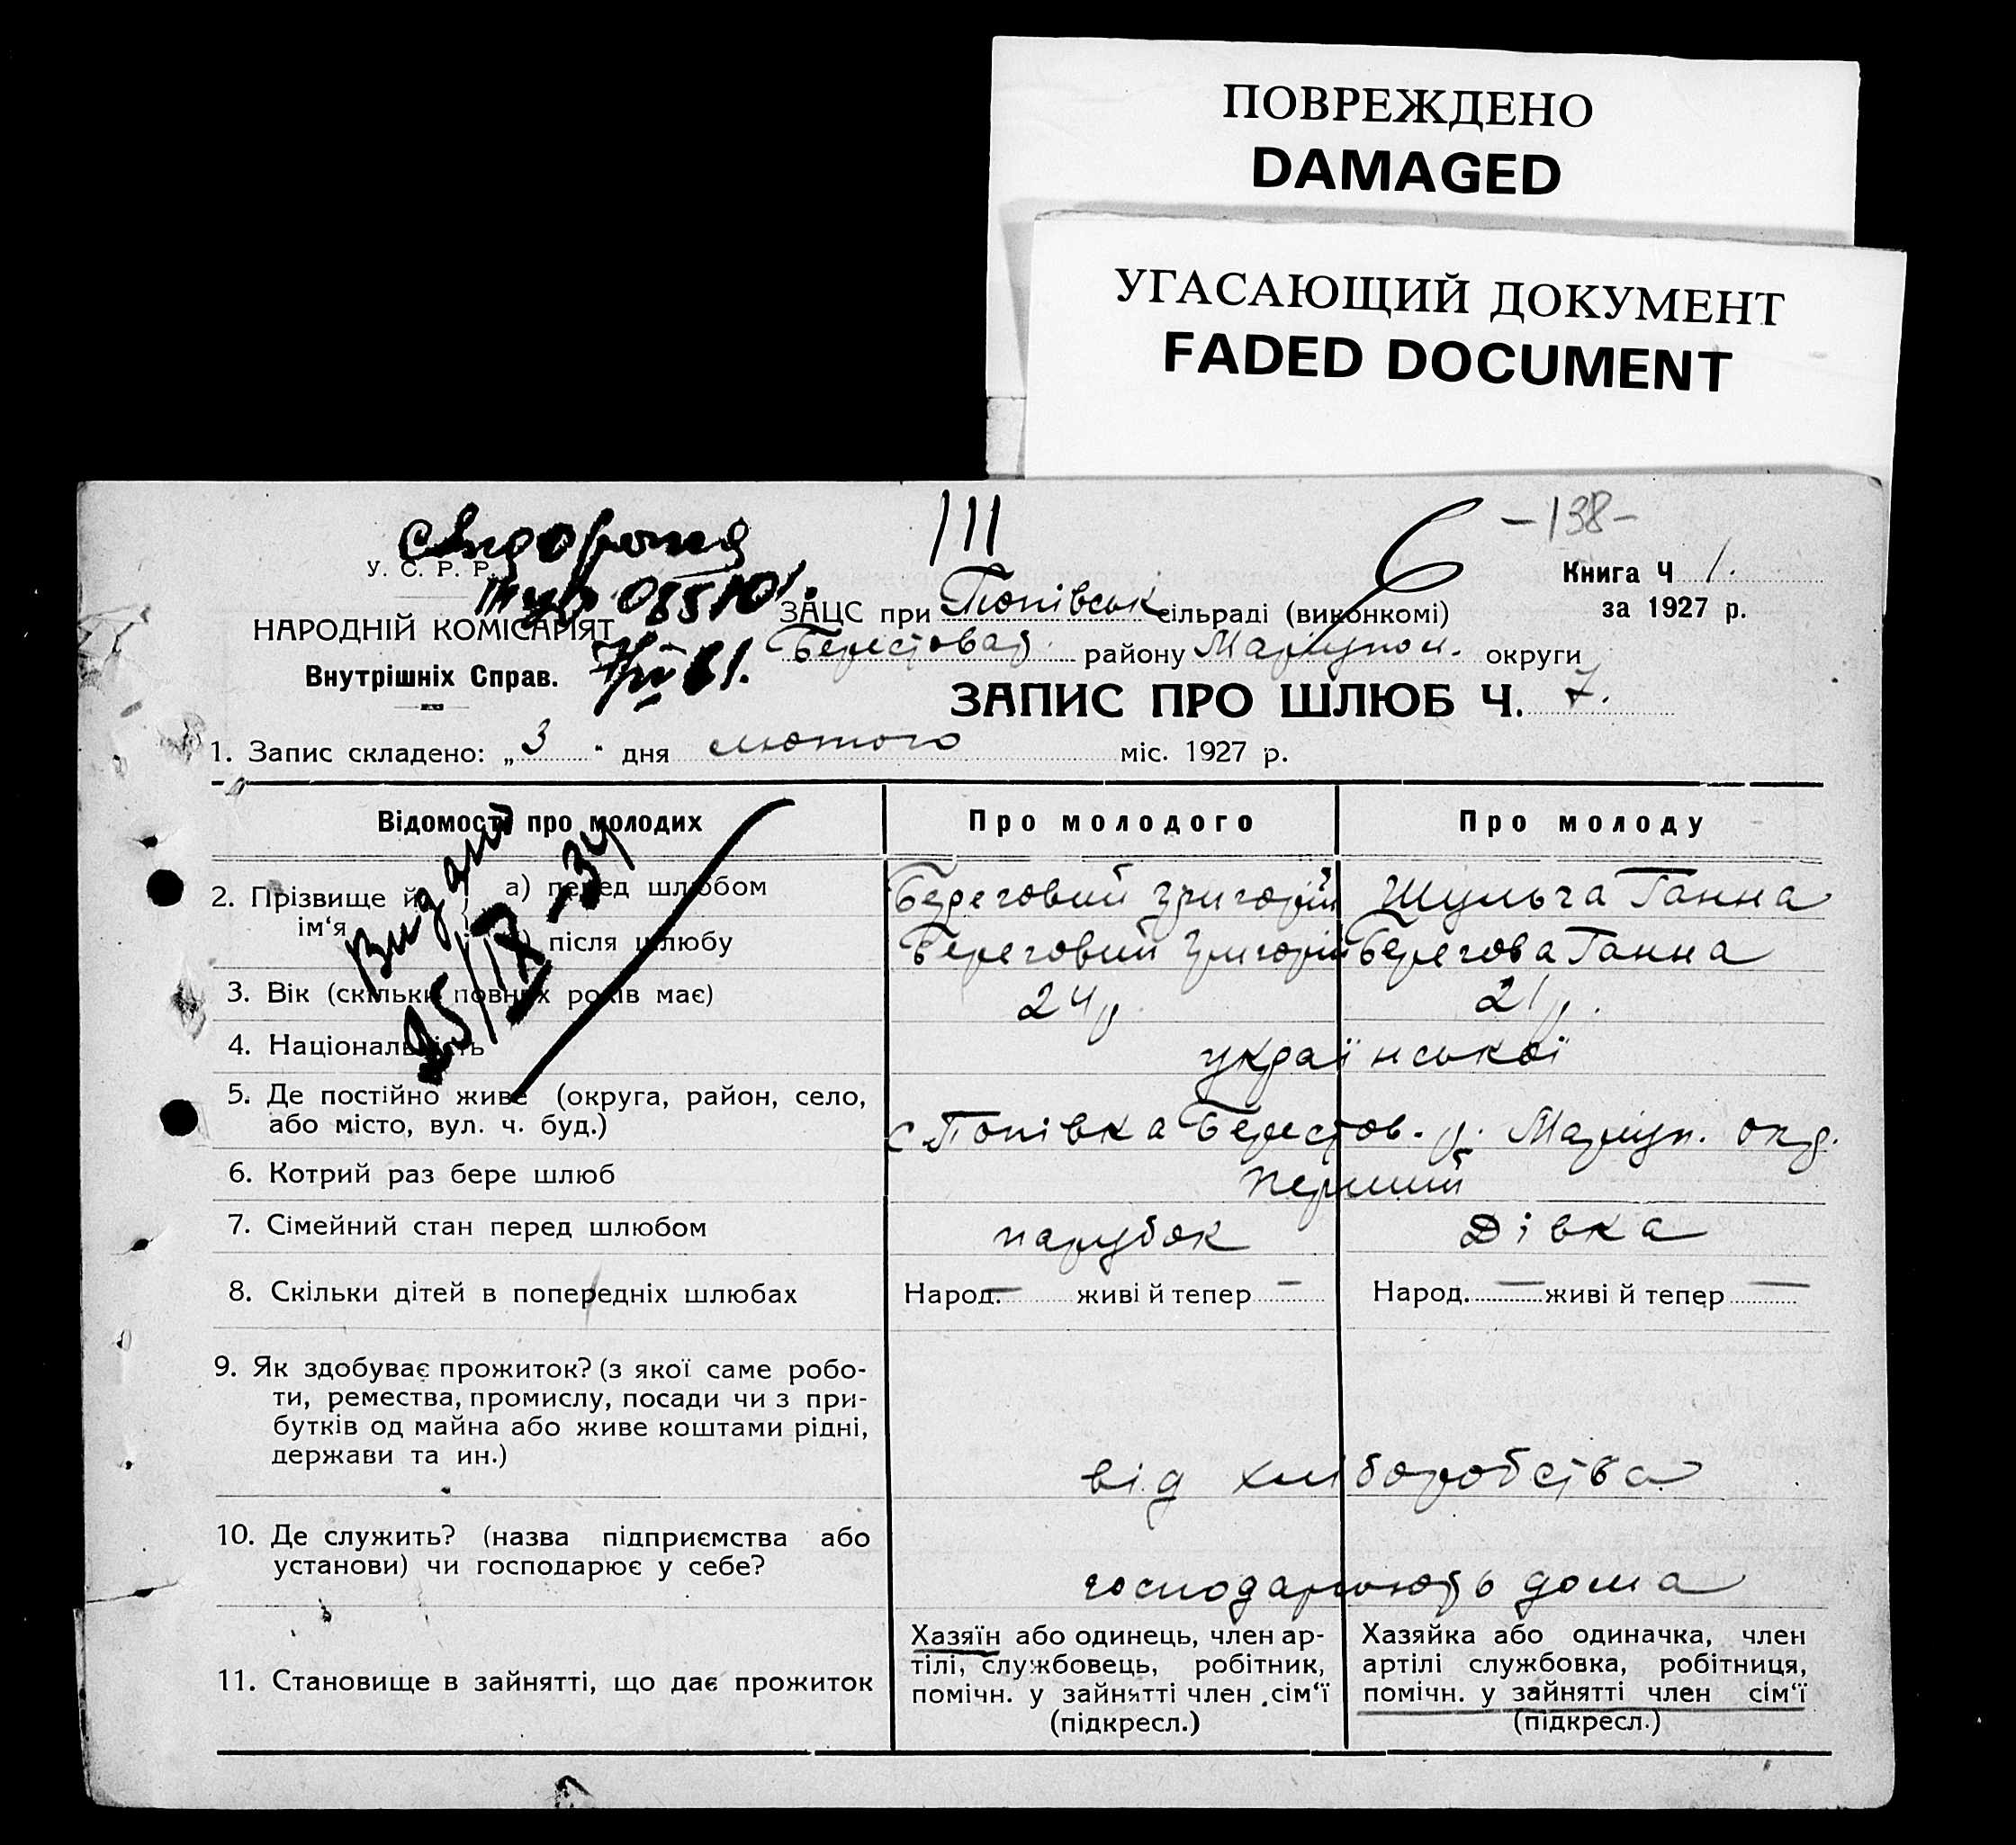 ПОВРЕЖДЕНО
DAMAGED
УГАСАЮЩИЙ ДОКУМЕНТ
FADED DOCUMENT
111
6
-138-
У. С. Р. Р.
НАРОДНІЙ КОМІСАРІЯТ
Внутрішніх Справ.
Книга Ч 1.
за 1927 р.
ЗАЦС при Попівськ сільраді (виконкомі)
Берестовау району Маріупол. округи
ЗАПИС ПРО ШЛЮБ Ч. 7.
1. Запис складено: „3" дня лютого міс. 1927 р.
Відомості про молодих Про молодого Про молоду
Видано
25/IX-34
2. Прізвище й ім'я
а) перед шлюбом Береговий Григорій Шульга Ганна
б) після шлюбу Береговий Григорій Берегова Ганна
3. Вік (скільки повних років має) 24 р. 21 р.
4. Національність української
5. Де постійно живе (округа, район, село,
або місто, вул. ч. буд.) с Попівка Берестов. р. Маріуп. окр.
6. Котрий раз бере шлюб перший
7. Сімейний стан перед шлюбом парубок Дівка
8. Скільки дітей в попередніх шлюбах Народ. — живі й тепер — Народ. — живі й тепер —
9. Як здобуває прожиток? (з якої саме робо-
ти, ремества, промислу, посади чи з при-
бутків од майна або живе коштами рідні,
держави та ин.)
від хліборобства
10. Де служить? (назва підприємства або
установи) чи господарює у себе?
господарюють дома
11. Становище в зайнятті, що дає прожиток
Хазяїн або одинець, член ар-
тілі, службовець, робітник,
помічн. у зайнятті член сім'ї
(підкресл.)
Хазяйка або одиначка, член
артілі службовка, робітниця,
помічн. у зайнятті член сім'ї
(підкресл.)